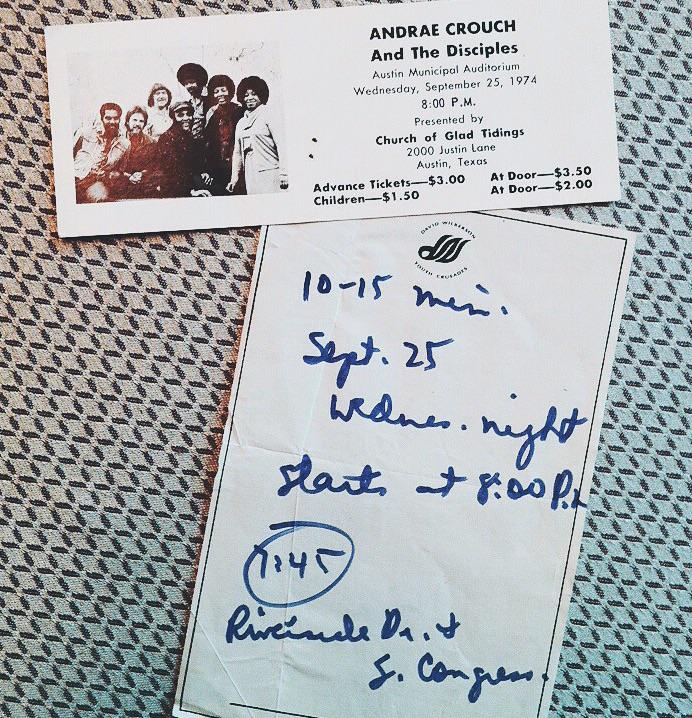 ANDRAE CROUCH
And The Disciples
Austin Municipal Auditorium
Wednesday, September 25, 1974
8:00 P.M.
Presented by
Church of Glad Tidings
2000 Justin Lane
Austin, Texas
Advance Tickets—$3.00 At Door—$3.50
Children—$1.50 At Door—$2.00
DAVID WILKERSON
YOUTH CRUSADES
10-15 min.
Sept. 25
Wednes. night
Starts at 8:00 P.M
7:45
Riverside Dr. &
S. Congress.